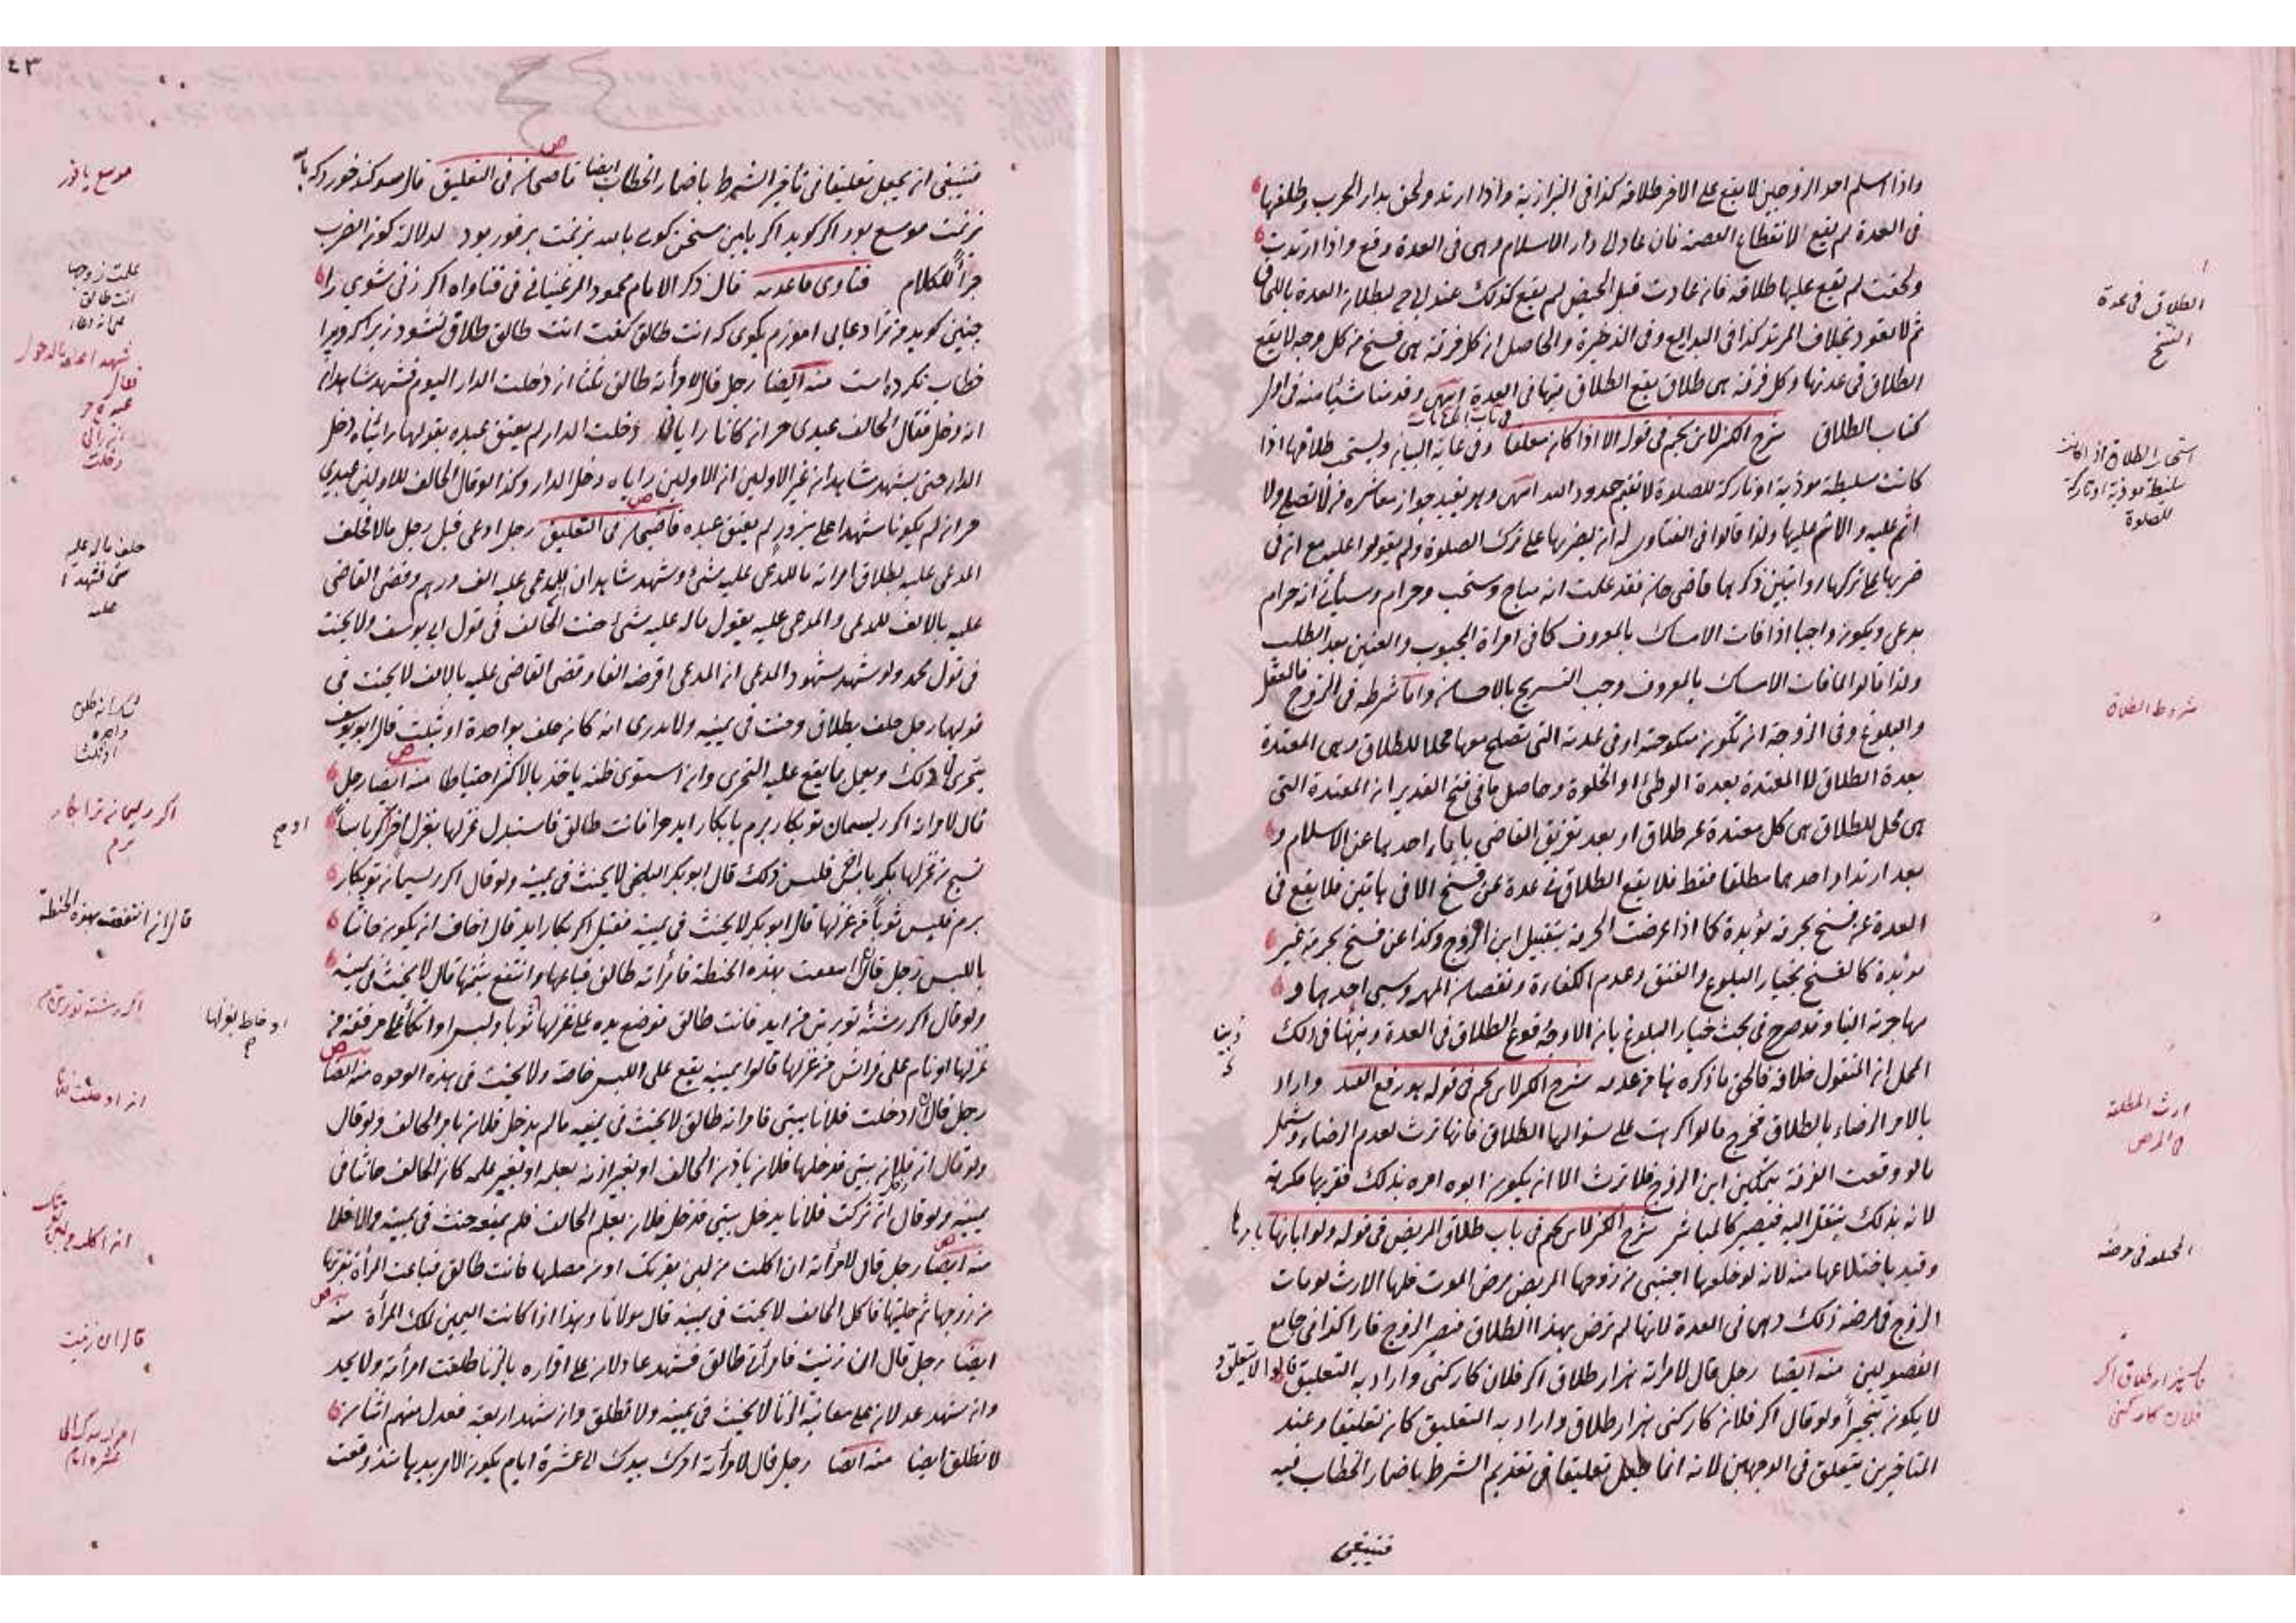 واذا اسلم احد الزوجين لا يقع على الاخر طلاقه كذا فى البزازية واذا ارتد ولحق بدار الحرب وطلقها
فى العدة لم يقع لانقطاع العصمة فان عاد الى دار الاسلام وهى فى العدة وقع واذا ارتدت
ولحقت لم يقع عليها طلاقه فان عادت قبل الحيض لم يقع كذلك عند ابى ح لبطلان العدة باللحاق
ثم لا تعود بخلاف المرتد كذا فى البدايع وفى الذخيرة والحاصل ان كل فرقة هى فسخ من كل وجه لا يقع
الطلاق فى عدتها وكل فرقة هى طلاق يقع الطلاق فيها فى العدة انتهى وقدمنا شيئا منه فى اول
كتاب الطلاق شرح الكنز لابن نجيم فى قوله الا اذا كان معلقا وفى غاية البيان ويستحب طلاقها اذا
كانت سليطة موذية او تاركة للصلوة لا تقيم حدود الله انتهى وهو يفيد جواز معاشرة من لا تصلى ولا
اثم عليه والاثم عليها ولذا قالوا فى الفتاوى له ان يضربها على ترك الصلوة ولم يقولوا عليه مع ان فى
ضربها على تركها روايتين ذكرهما قاضى خان فقد علمت انه مباح ومستحب وحرام وسياتى انه حرام
بدعى ويكون واجبا اذا فات الامساك بالمعروف كما فى امراة المجبوب والعنين بعد الطلب
ولذا قالوا اذا فات الامساك بالمعروف وجب التسريح بالاحسان واما شرطه فى الزوج فالعقل
والبلوغ وفى الزوجة ان تكون منكوحته او فى عدته التى تصلح معها محلا للطلاق وهى المعتدة
بعدة الطلاق لا المعتدة بعدة الوطئ او الخلوة وحاصل ما فى فتح القدير ان المعتدة التى
هى محل للطلاق هى كل معتدة عن طلاق او بعد تفريق القاضى باباء احدهما عن الاسلام و
بعد ارتداد احدهما مطلقا فقط فلا يقع الطلاق فى عدة عن فسخ الا فى هاتين فلا يقع فى
العدة عن فسخ بحرمة مؤبدة كما اذا عرضت الحرمة بتقبيل ابن الزوج وكذا عن فسخ بحرمة غير
مؤبدة كالفسخ بخيار البلوغ والعتق وعدم الكفاءة ونقصان المهر وسبى احدهما و
مهاجرته الينا وقد صرح فى بحث خيار البلوغ بان الاوجه وقوع الطلاق فى العدة وبينا فى ذلك
المحل ان المنقول خلافه فالحق ما ذكره هنا من عدمه شرح الكنز لابن نجيم فى قوله هو رفع القيد واراد
بالامر الرضاء بالطلاق فخرج ما لو اكرهت على سؤالها الطلاق فانها ترث لعدم الرضاء وشمل
ما لو وقعت الفرقة بتمكين ابن الزوج فلا ترث الا ان يكون ابوه امره بذلك فقربها مكرهة
لانه بذلك ينتقل اليه فيصير كالمباشر شرح الكنز لابن نجيم فى باب طلاق المريض فى قوله ولو ابانها بامرها
وقيد باختلاعها منه لانه لو خلعها اجنبى من زوجها المريض مرض الموت فلها الارث لو مات
الزوج فى مرضه ذلك وهى فى العدة لانها لم ترض بهذا الطلاق فيصير الزوج فارا كذا فى جامع
الفصولين منه ايضا رجل قال لامراته هزار طلاق اكر فلان كار كنى واراد به التعليق قالوا لا يتعلق و
لا يكون تنجيزا ولو قال اكر فلان كار كنى هزار طلاق واراد به التعليق كان تعليقا وعند
المتاخرين يتعلق فى الوجهين لانه انما جعل تعليقا فى تقديم الشرط باضمار الخطاب فيه
فينبغى
الطلاق فى عدة
الفسخ
استحباب الطلاق اذا كانت
سليطة موذية او تاركة
للصلوة
شروط الطلاق
ارث المطلقة
فى المرض
الخلع فى مرضه
هزار طلاق اكر
فلان كار كنى
٤٣
فينبغى ان يجعل تعليقا فى تأخير الشرط باضمار الخطاب ايضا قاضى خان فى التعليق
جرا للكلام فتاوى قاعديه قال ذكر الامام محمود المرغينانى فى فتاواه اكر زنى شوى را
چنين كويد مرا دعايى اموزم بكوى كه انت طالق كفت انت طالق طلاق نشود زيرا كه ويرا
خطاب نكرده است منه ايضا رجل قال لامرأته طالق ثلثا ان دخلت الدار اليوم فشهد شاهدان
انه دخل فقال الحالف عبدى حر ان كانا رايانى دخلت الدار لم يعتق عبده بقولهما رايناه دخل
الدار حتى يشهد شاهدان غير الاولين ان الاولين راياه دخل الدار وكذا لو قال الحالف للاولين عبدى
حر ان لم يكونا شهدا على بزور لم يعتق عبده قاضى خان فى التعليق رجل ادعى قبل رجل مالا فحلف
المدعى عليه بطلاق امراته ما للمدعى عليه شئ وشهد شاهدان للمدعى عليه الف درهم وقضى القاضى
عليه بالالف للمدعى والمدعى عليه يقول ماله عليه شئ حنث الحالف فى قول ابى يوسف ولا يحنث
فى قول محمد ولو شهد شهود المدعى ان المدعى اقرضه الفا وقضى القاضى عليه بالالف لا يحنث فى
قولهما رجل حلف بطلاق وحنث فى يمينه ولا يدرى انه كان حلف بواحدة او ثلث قال ابو يوسف
يتحرى فى ذلك ويعمل بما يقع عليه التحرى وان استوى ظنه ياخذ بالاكثر احتياطا منه ايضا رجل
قال لامراته اكر ريسمان تو بكار برم يا بكار ايد مرا فانت طالق فاستبدل غزلها بغزل اخر
نسج من غزلها فلبس ذلك قال ابو بكر البلخى لا يحنث فى يمينه ولو قال اكر ريسمان تو بكار
برم فلبس ثوبا من غزلها قال ابو بكر لا يحنث فى يمينه فقيل اكر بكار ايد قال اخاف ان يكون حانثا
باللبس رجل قال ان انتفعت بهذه الحنطة فامرأته طالق فباعها وانتفع بثمنها قال لا يحنث فى يمينه
ولو قال اكر رشته تو بر تن من ايد فانت طالق فوضع يده على غزلها ثوبا ولبس او اتكأ على مرفقة من
غزلها او نام على فراش من غزلها قالوا يمينه يقع على اللبس خاصة ولا يحنث فى هذه الوجوه منه ايضا
رجل قال ان ادخلت فلانا بيتى فامراته طالق لا يحنث فى يمينه ما لم يدخل فلان بامر الحالف ولو قال
ولو قال ان دخل فلان بيتى فدخلها فلان باذن الحالف او بغير اذنه بعلمه او بغير علمه كان الحالف حانثا فى
يمينه ولو قال ان تركت فلانا يدخل بيتى فدخل فلان بعلم الحالف فلم يمنعه حنث فى يمينه والا فلا
منه ايضا رجل قال لامرأته ان اكلت من لبن بقرتك او من مصلها فانت طالق فباعت المرأة بقرتها
من زوجها ثم حلبتها فاكل الحالف لا يحنث فى يمينه قال مولانا وهذا اذا كانت اليمين لملك المرأة منه
ايضا رجل قال ان زنيت فامرأته طالق فشهد عادلان على اقراره بالزنا طلقت امرأته ولا يحد
وان شهد عدلان على معاينة الزنا لا يحنث فى يمينه ولا تطلق وان شهد اربعة فعدل منهم اثنان
لا تطلق ايضا منه ايضا رجل قال لامرأته امرك بيدك الى عشرة ايام يكون الامر بيدها منذ وقعت
علمت زوجها
انت طالق
حلف ماله عليه
شئ فشهدا
عليه
واحده
او ثلثا
اكر ريسمان ترا بكار
برم
قال ان انتفعت بهذه الحنطة
او خاط بغزلها
قال ان زنيت
عشرة ايام